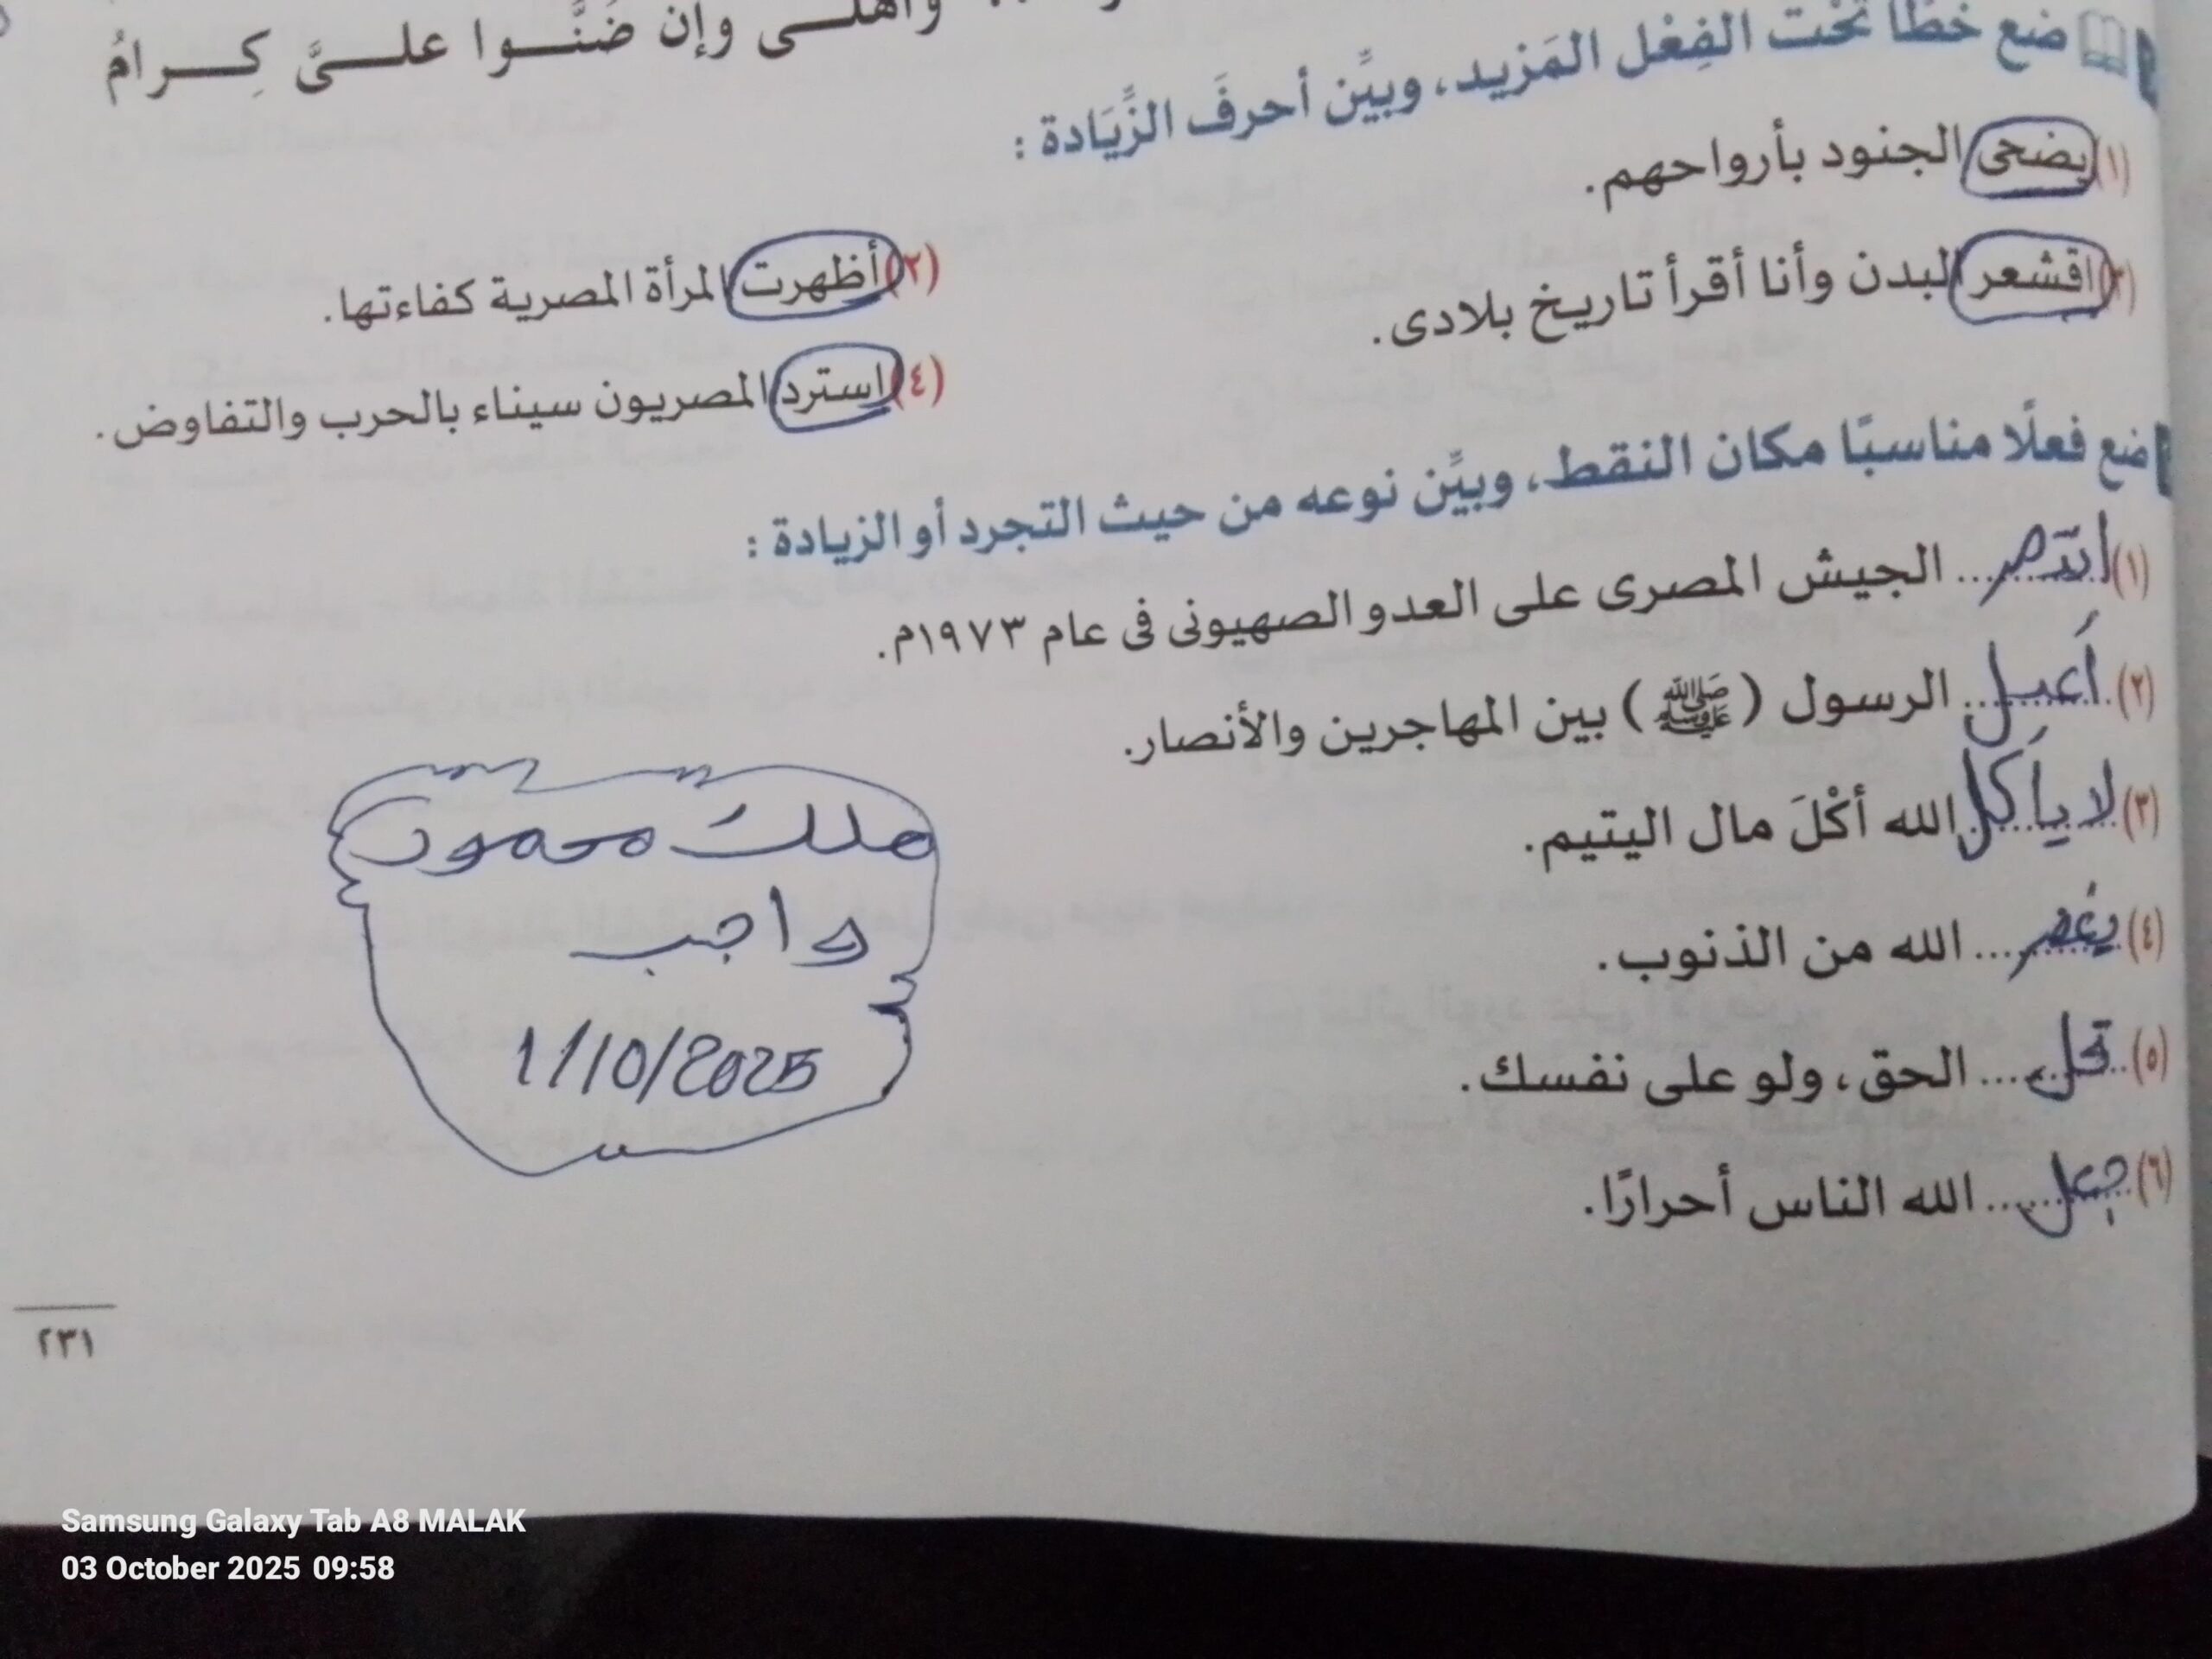 وأهلـــى وإن ضَنُّـــوا علـــىَّ كِـــرامُ
ضع خطًّا تحْت الفِعْل المَزيد، وبيِّن أحرفَ الزِّيَادة :
(١) يضحى الجنود بأرواحهم.
(٢) أظهرت المرأة المصرية كفاءتها.
(٣) اقشعر البدن وأنا أقرأ تاريخ بلادى.
(٤) استرد المصريون سيناء بالحرب والتفاوض.
ضع فعلًا مناسبًا مكان النقط، وبيِّن نوعه من حيث التجرد أو الزيادة :
(١) انتصر ... الجيش المصرى على العدو الصهيونى فى عام ١٩٧٣م.
(٢) ... الرسول (ﷺ) بين المهاجرين والأنصار.
(٣) لا يأكل الله أكْلَ مال اليتيم.
(٤) يغفر ... الله من الذنوب.
(٥) قل ... الحق، ولو على نفسك.
(٦) جعل ... الله الناس أحرارًا.
ملك محمود
واجب
1/10/2025
٢٣١
Samsung Galaxy Tab A8 MALAK
03 October 2025 09:58